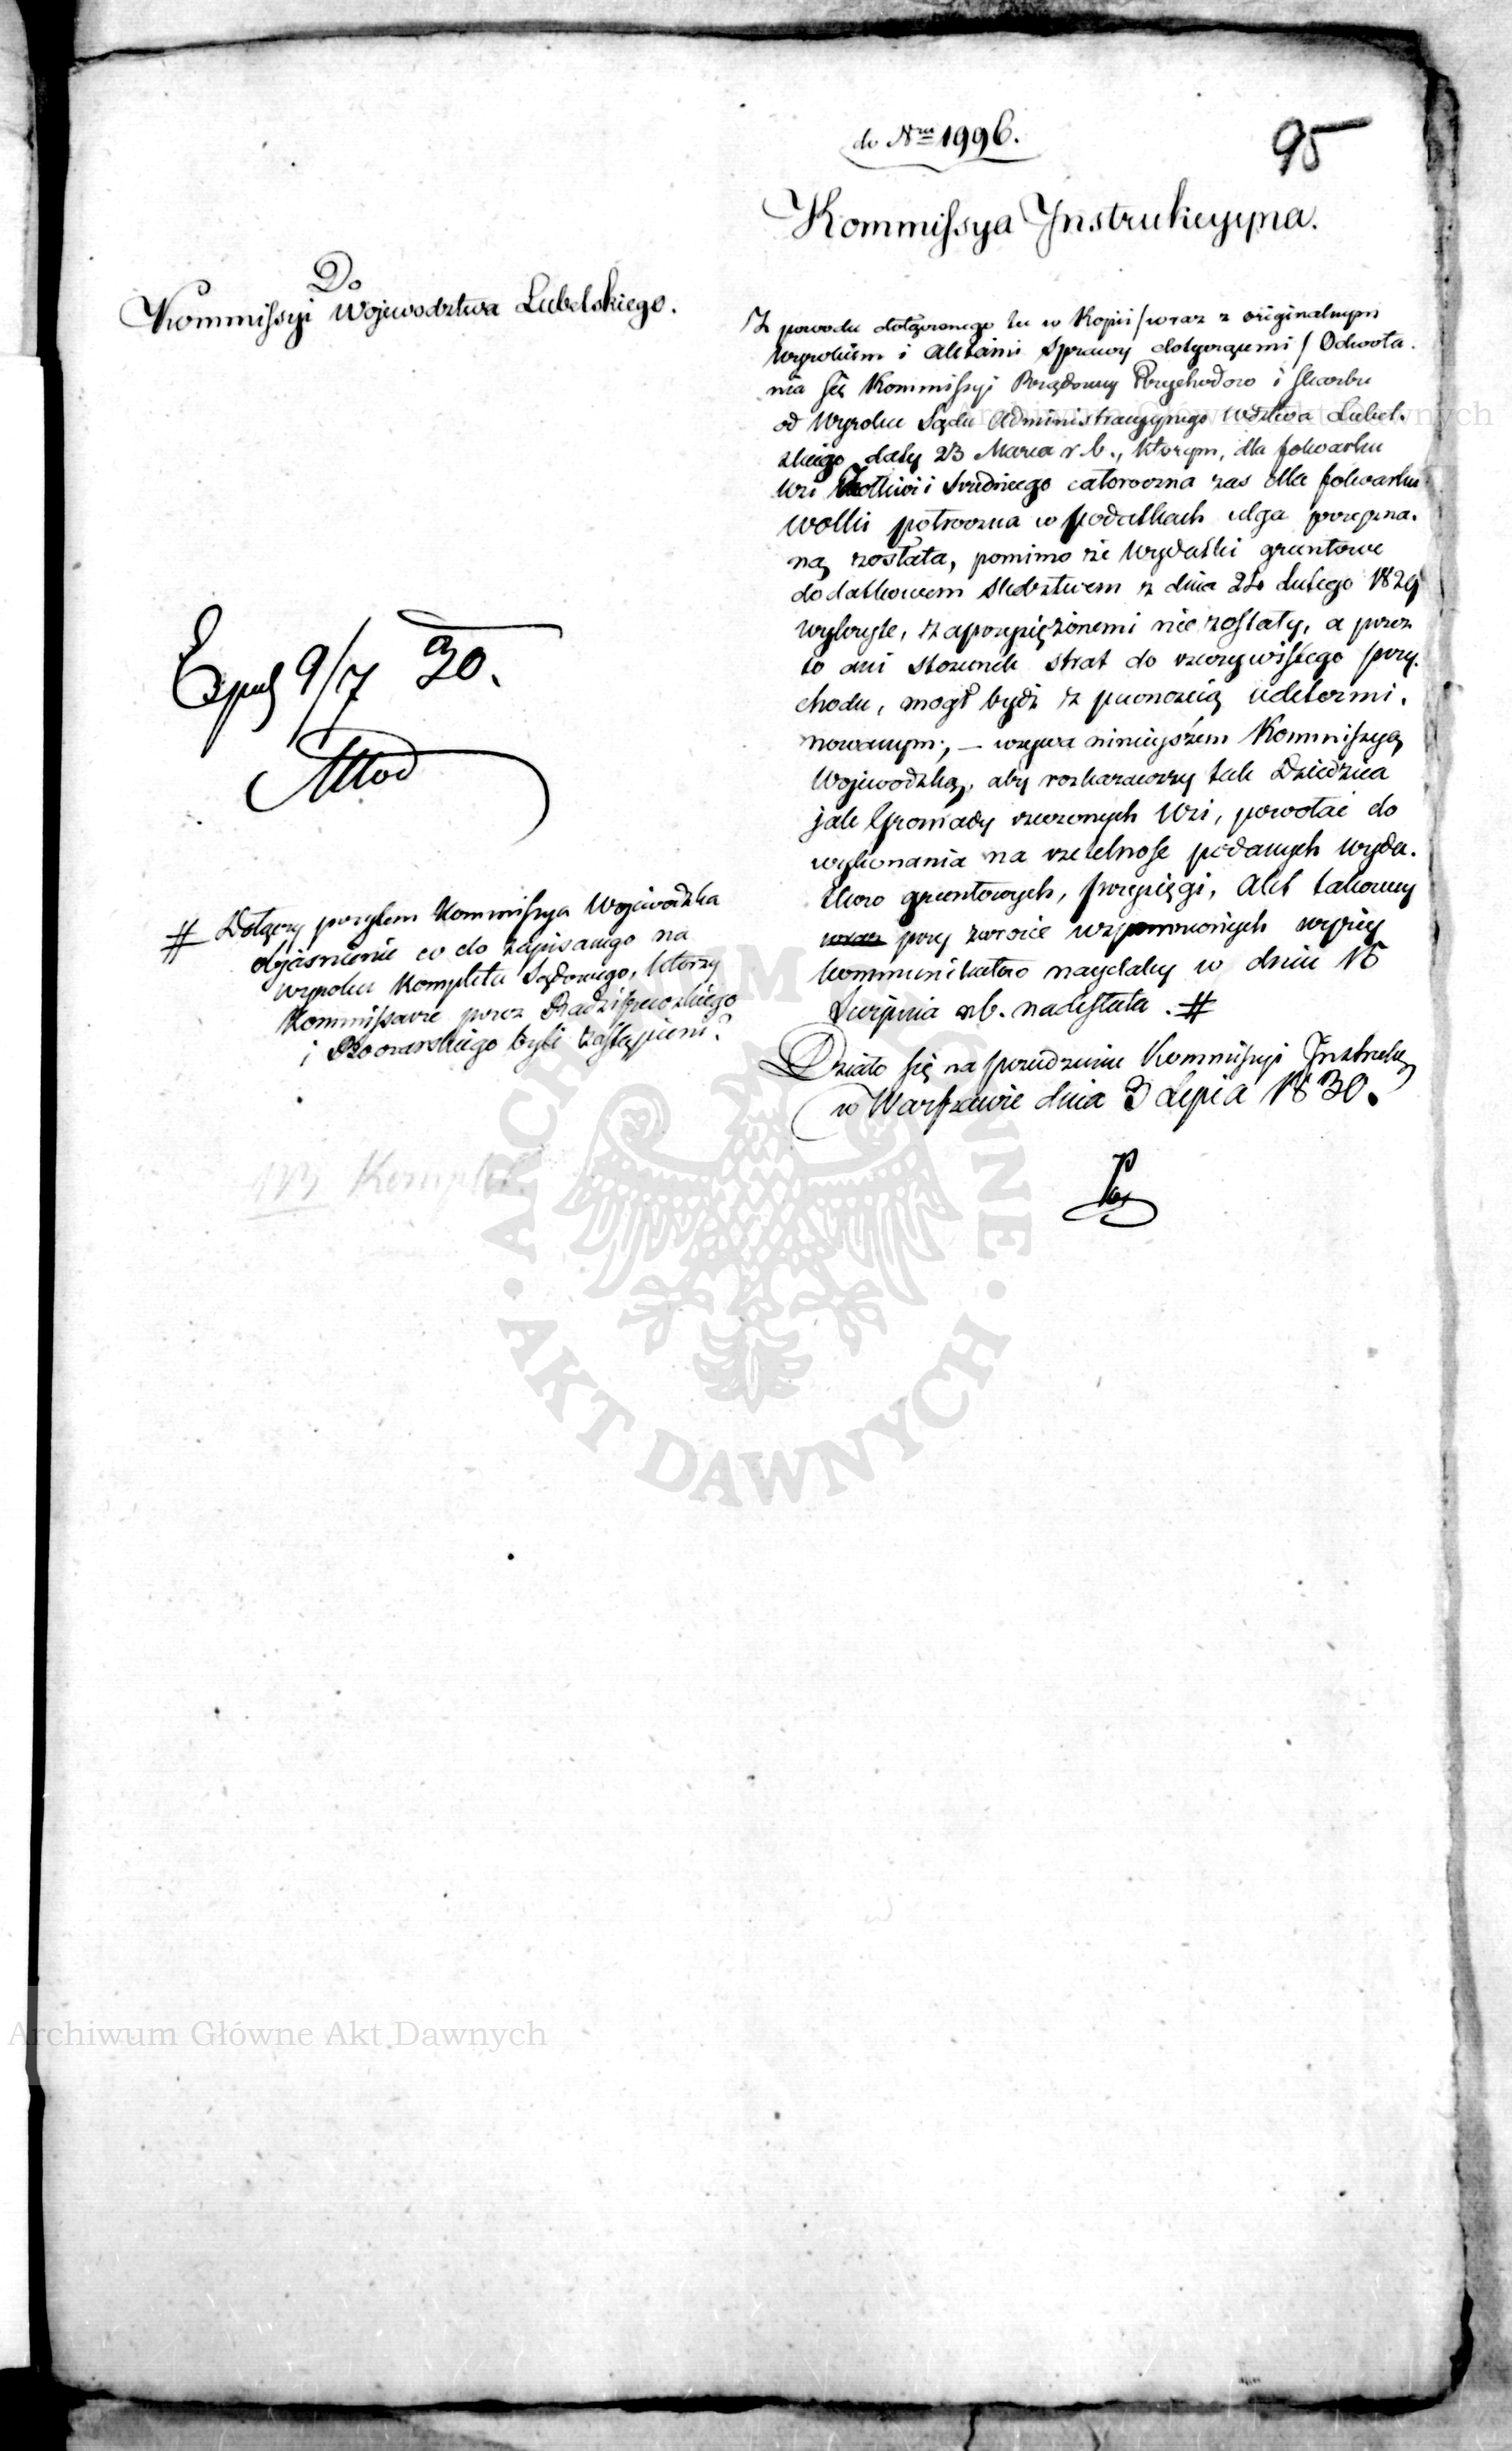 do Nru 1996.
95
Kommissya Instrukcyyna.
Do
Kommissyi Wojewodztwa Lubelskiego.
Z powodu dołączonego tu w Kopii /wraz z originalnym
Wyrokiem i Aktami Sprawy dotyczącemi/ Odwoła-
nia się Kommissyi Rządowey Przychodow i Skarbu
od Wyroku Sądu Administracyynego Wdztwa Lubel-
skiego daty 23 Marca r. b., którym, dla folwarku
Wsi i Średniego całoroczna zas dla folwarku
Wolki połroczna w podatkach ulga przyzna-
ną została, pomimo że Wydatki gruntowe
dodatkowem Sledztwem z dnia 24 Lutego 1829
wykryte, zaprzysiężonemi nie zostały, a przez
to ani stosunek strat do rzeczywistego przy-
chodu, mogł bydź z pewnością udetermi-
nowanym; — wzywa ninieyszem Kommissyą
Wojewodzką, aby rozkazawszy tak Dziedzica
jak Gromady rzeczonych Wsi, powołać do
wykonania na rzetelność podanych wyda-
tkow gruntowych, przysięgi, Akt takowy
przy zwrocie wspomnionych wyżey
kommunikatow naydaley w dniu 15
Sierpnia r. b. nadesłała. #
Działo się na posiedzeniu Kommissyi Instrukc
w Warszawie dnia 3 Lipca 1830.
Exped 9/7 30.
# Dołączy przytem Kommissya Wojewodzka
objasnienie co do zapisanego na
wyroku Kompletu Sądowego, którzy
Kommissarze przez Radziszewskiego
i byli zastąpieni?
Komplet
ARCHIWUM GŁÓWNE AKT DAWNYCH
Archiwum Główne Akt Dawnych
Archiwum Główne Akt Dawnych